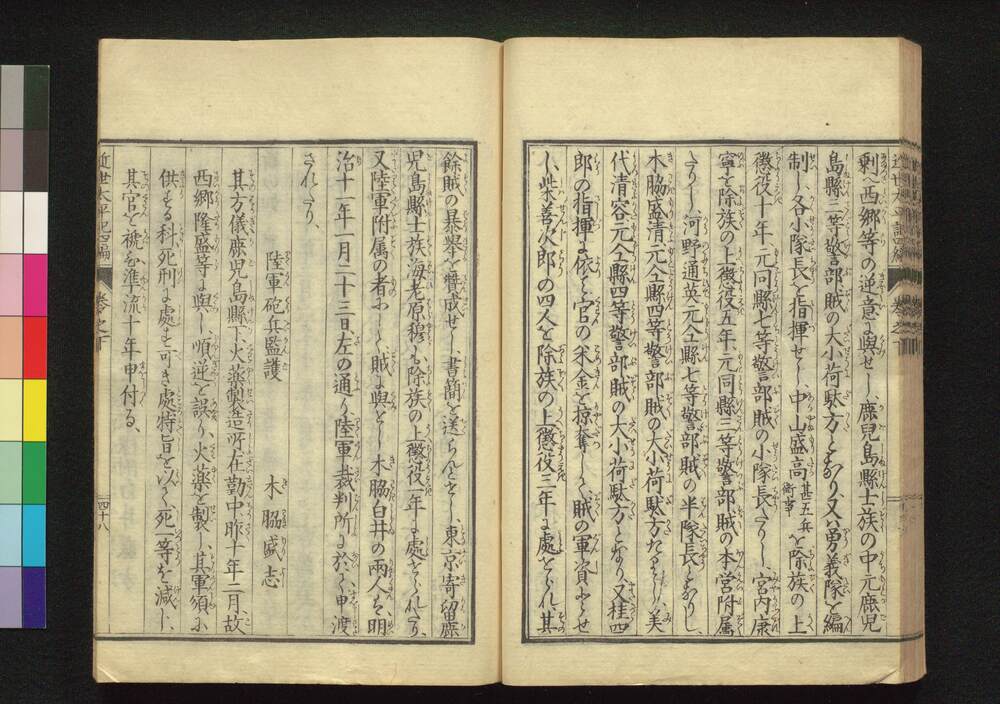 剰へ西郷等の逆意に與せし鹿児島縣士族の中元鹿児
島縣三等警部賊の大小荷駄方となり又ハ勇義隊を編
制し各小隊長を指揮せし中山盛高甚五兵衛事を除族の上
懲役十年元同縣七等警部賊の小隊長たりし宮内康
寧を除族の上懲役五年元同縣三等警部賊の本営附属
たりし河野通英元仝縣七等警部賊の半隊長となりし
木脇盛清元仝縣四等警部賊の大小荷駄方たりし美
代清容元仝縣四等警部賊の大小荷駄方となり又桂四
郎の指揮に依て官の米金を掠奪して賊の軍資とせ
し柴善次郎の四人を除族の上懲役三年に處せられ其
餘賊の暴挙を賛成せし書簡を送らんとせし東京寄留鹿
児島縣士族海老原穆も除族の上懲役一年に處せられたり
又陸軍附属の者にして賊に與せし木脇白井の兩人も明
治十一年一月二十三日左の通り陸軍裁判所に於て申渡
されたり、
陸軍砲兵監護 木脇盛志
其方儀鹿児島縣下火薬製造所在勤中昨十年二月故
西郷隆盛等に與し順逆を誤り火薬を製し其軍須に
供する科死刑に處す可き處特旨を以て死一等を減し
其官を褫ひ準流十年申付る、
近世太平記四編 巻之下 四十八